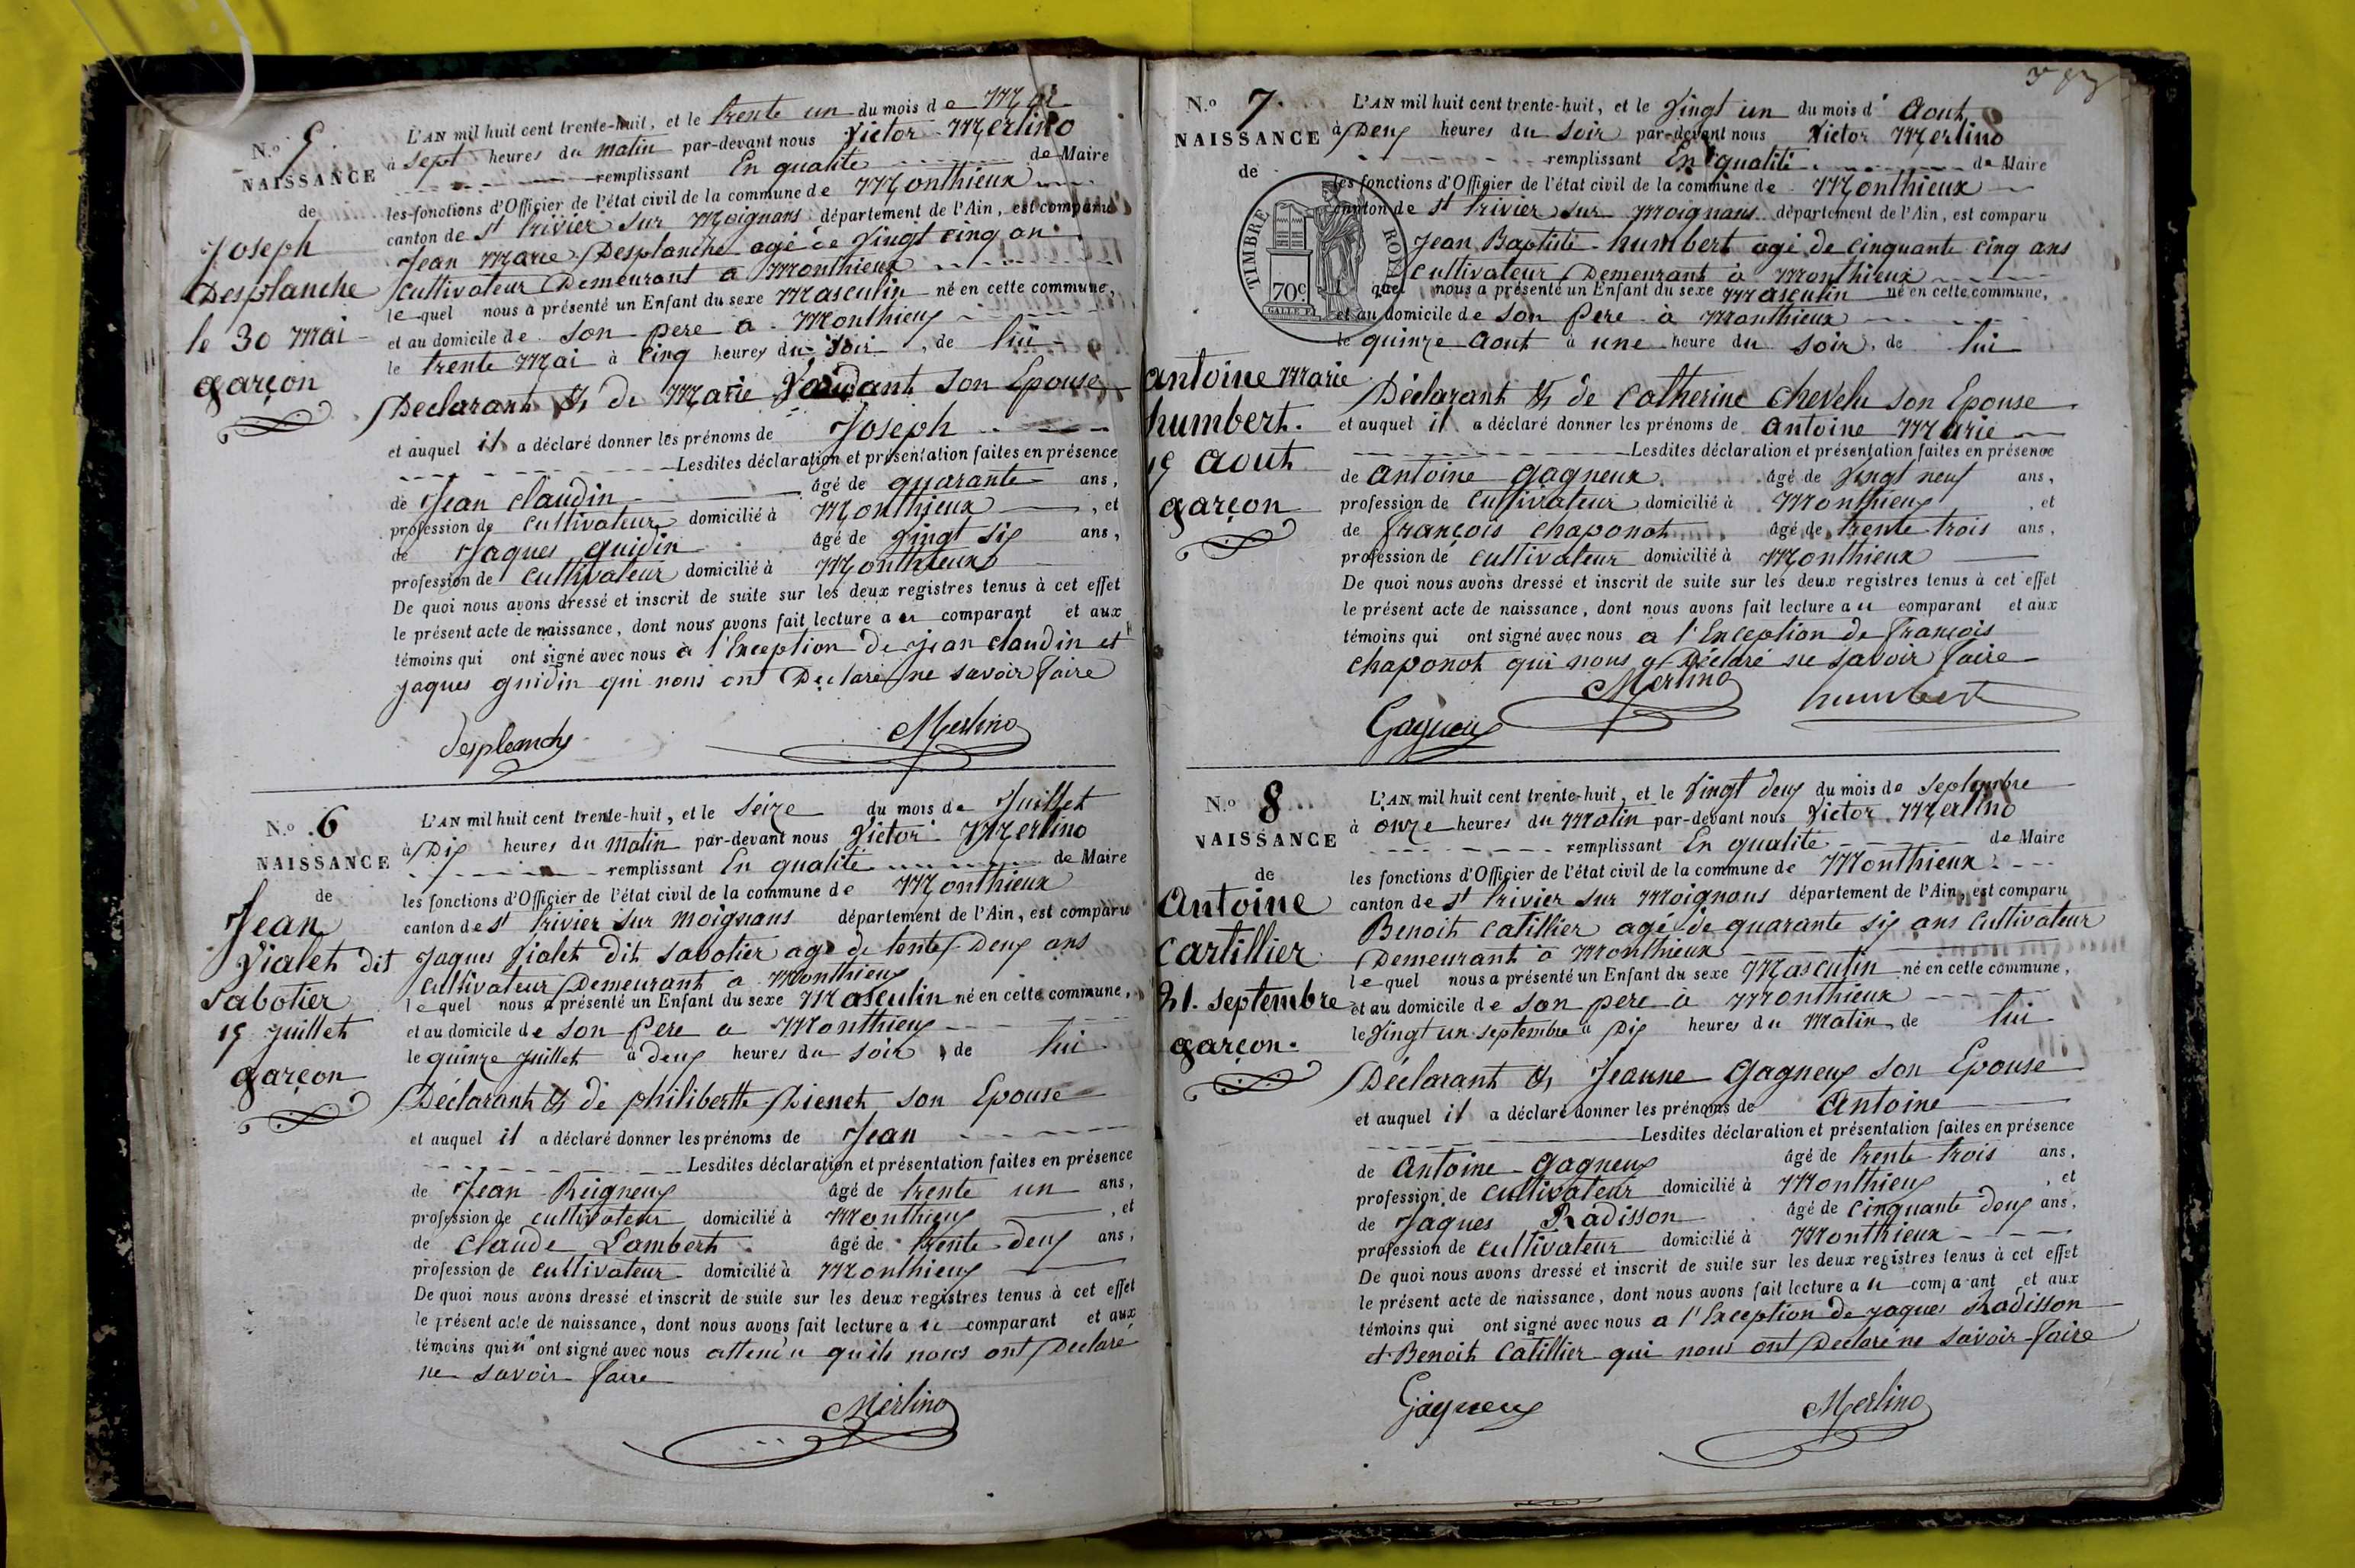 N.º 5
NAISSANCE
de
Joseph
Desplanche
le 30 Mai
garçon
L'AN mil huit cent trente-huit, et le trente un du mois de Mai
à sept heures du matin par-devant nous Victor Merlino
remplissant En qualité de Maire
les fonctions d'Officier de l'état civil de la commune de Monthieux
canton de St trivier sur Moignans département de l'Ain, est comparu
Jean Marie Desplanche agé de Vingt cinq an
Cultivateur Demeurant a Monthieux
le quel nous a présenté un Enfant du sexe Masculin né en cette commune,
et au domicile de son pere a Monthieux
le trente Mai à Cinq heures du soir, de lui
Déclarant & de Marie son Epouse
et auquel il a déclaré donner les prénoms de Joseph
Lesdites déclaration et présentation faites en présence
de Jean Claudin âgé de quarante ans,
profession de Cultivateur domicilié à Monthieux, et
de Jaques guidin âgé de Vingt six ans,
profession de Cultivateur domicilié à Monthieux
De quoi nous avons dressé et inscrit de suite sur les deux registres tenus à cet effet
le présent acte de naissance, dont nous avons fait lecture a u comparant et aux
témoins qui ont signé avec nous a l'Exception de jean claudin et
jaques guidin qui nous ont Declaré ne savoir faire
Desplanche Merlino
N.º 6
NAISSANCE
de
Jean
Vialet dit
Sabotier
15 Juillet
garçon
L'AN mil huit cent trente-huit, et le seize du mois de Juillet
à Dix heures du matin par-devant nous Victor Merlino
remplissant En qualité de Maire
les fonctions d'Officier de l'état civil de la commune de Monthieux
canton de St trivier sur moignans département de l'Ain, est comparu
Jaques Vialet dit sabotier agé de tente Deux ans
Cultivateur Demeurant a Monthieux
le quel nous a présenté un Enfant du sexe Masculin né en cette commune,
et au domicile de son Pere a Monthieux
le quinze Juillet à deux heures du soir, de lui
Déclarant & de philiberthe son Epouse
et auquel il a déclaré donner les prénoms de Jean
Lesdites déclaration et présentation faites en présence
de Jean Reigneux âgé de trente un ans,
profession de cultivateur domicilié à Monthieux, et
de Claude Lambert âgé de trente deux ans,
profession de cultivateur domicilié à Monthieux
De quoi nous avons dressé et inscrit de suite sur les deux registres tenus à cet effet
le présent acte de naissance, dont nous avons fait lecture a u comparant et aux
témoins qui n' ont signé avec nous attendu qu'ils nous ont Declaré
ne savoir faire
Merlino
N.º 7.
NAISSANCE
de
TIMBRE ROYAL
70c
GALLE F.
antoine Marie
humbert.
15 Aout
garçon
L'AN mil huit cent trente-huit, et le Vingt un du mois d' Aout
à Deux heures du soir par-devant nous Victor Merlino
remplissant En qualité de Maire
les fonctions d'Officier de l'état civil de la commune de Monthieux
canton de St trivier sur moignans département de l'Ain, est comparu
Jean Baptiste humbert agé de cinquante cinq ans
Cultivateur Demeurant a Monthieux
quel nous a présenté un Enfant du sexe masculin né en cette commune,
et au domicile de son Pere a Monthieux
le quinze Aout à une heure du soir, de lui
Déclarant & de Catherine Chevelu son Epouse
et auquel il a déclaré donner les prénoms de Antoine Marie
Lesdites déclaration et présentation faites en présence
de Antoine gagneux âgé de Vingt neuf ans,
profession de Cultivateur domicilié à Monthieux, et
de françois chaponot âgé de trente trois ans,
profession de cultivateur domicilié à Monthieux
De quoi nous avons dressé et inscrit de suite sur les deux registres tenus à cet effet
le présent acte de naissance, dont nous avons fait lecture a u comparant et aux
témoins qui ont signé avec nous a l'Exception de françois
chaponot qui nous a Déclaré ne savoir faire
Merlino humbert
Gagneux
N.º 8
NAISSANCE
de
Antoine
Cartillier
21. septembre
garçon.
L'AN mil huit cent trente-huit, et le Vingt deux du mois de septembre
à onze heures du Matin par-devant nous Victor Merlino
remplissant En qualité de Maire
les fonctions d'Officier de l'état civil de la commune de Monthieux
canton de St trivier sur Moignans département de l'Ain, est comparu
Benoit Catillier agé de quarante six ans Cultivateur
Demeurant a Monthieux
le quel nous a présenté un Enfant du sexe Masculin né en cette commune,
et au domicile de son pere a Monthieux
le Vingt un septembre à Dix heures du Matin, de lui
Déclarant & Jeanne Gagneux son Epouse
et auquel il a déclaré donner les prénoms de Antoine
Lesdites déclaration et présentation faites en présence
de Antoine Gagneux âgé de trente trois ans,
profession de cultivateur domicilié à Monthieux, et
de Jaques Radisson âgé de cinquante deux ans,
profession de cultivateur domicilié à Monthieux
De quoi nous avons dressé et inscrit de suite sur les deux registres tenus à cet effet
le présent acte de naissance, dont nous avons fait lecture a u comparant et aux
témoins qui ont signé avec nous a l'Exception de jaques Radisson
et Benoit Catillier qui nous ont Declaré ne savoir faire
Gagneux Merlino